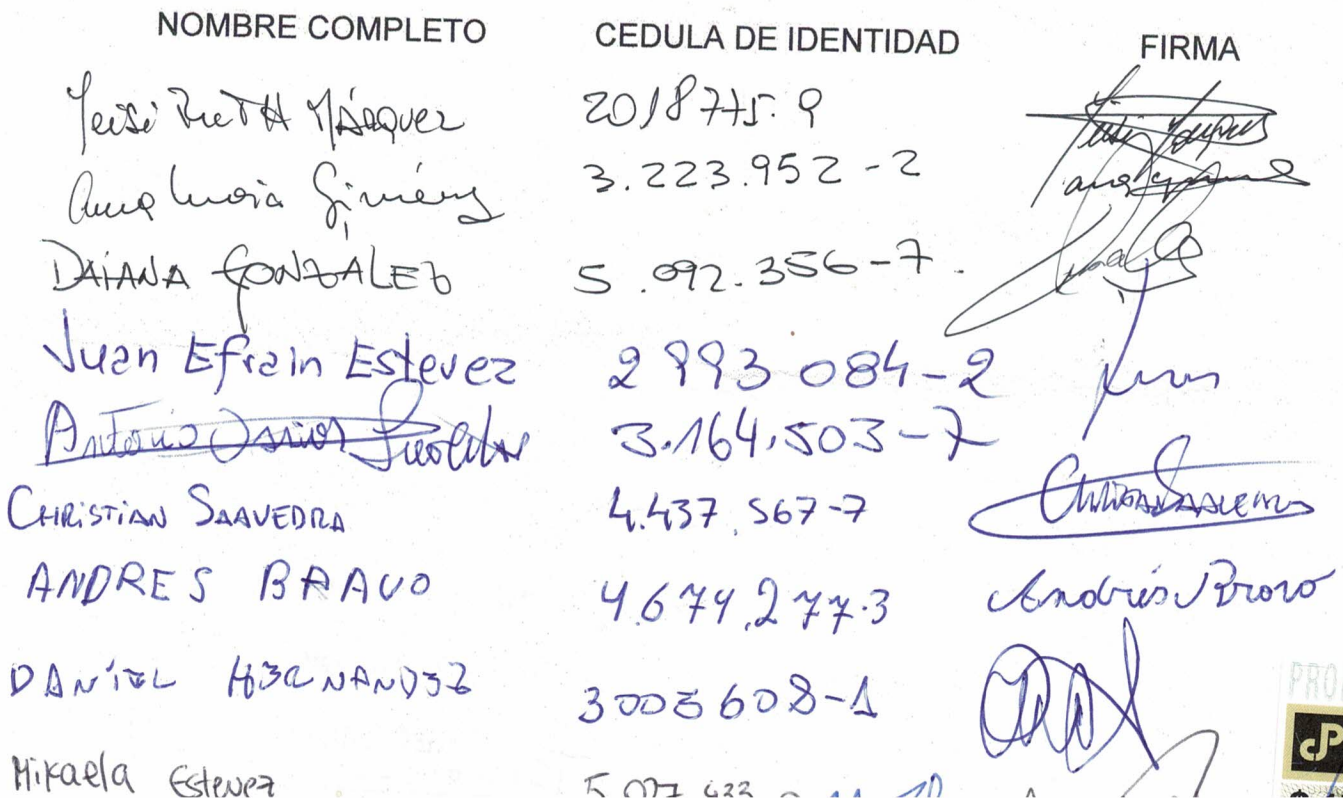 NOMBRE COMPLETO CEDULA DE IDENTIDAD FIRMA
Ruth Márquez 2018775.9
Ana Lucia Giménez 3.223.952-2
DAIANA GONZÁLEZ 5.092.356-7.
Juan Efrain Estevez 2993084-2
Antonio 3.164.503-7
CHRISTIAN SAAVEDRA 4.437.567-7
ANDRES BRAVO 4.674.277.3 Andrés Bravo
DANIEL HERNANDEZ 3003608-1
PRO
Mikaela Estevez